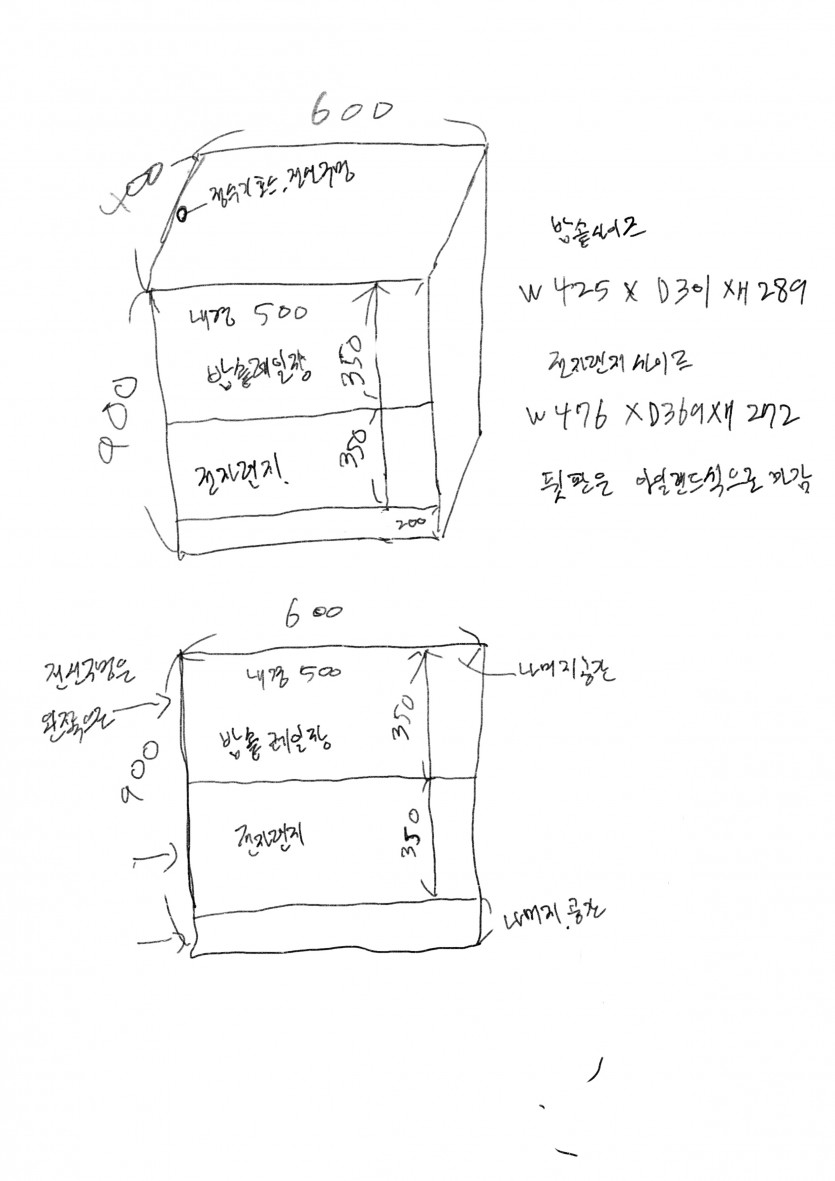 600
400
정수기호스, 전선구멍
내경 500
밥솥레일장
350
900
전자렌지.
350
200
밥솥싸이즈
W 425 X D301 X H 289
전자렌지 싸이즈
W 476 X D369 X H 272
뒷판은 아일랜드식으로 마감
600
전선구멍은
왼쪽으로
내경 500
나머지공간
밥솥 레일장
350
900
전자렌지
350
나머지.공간